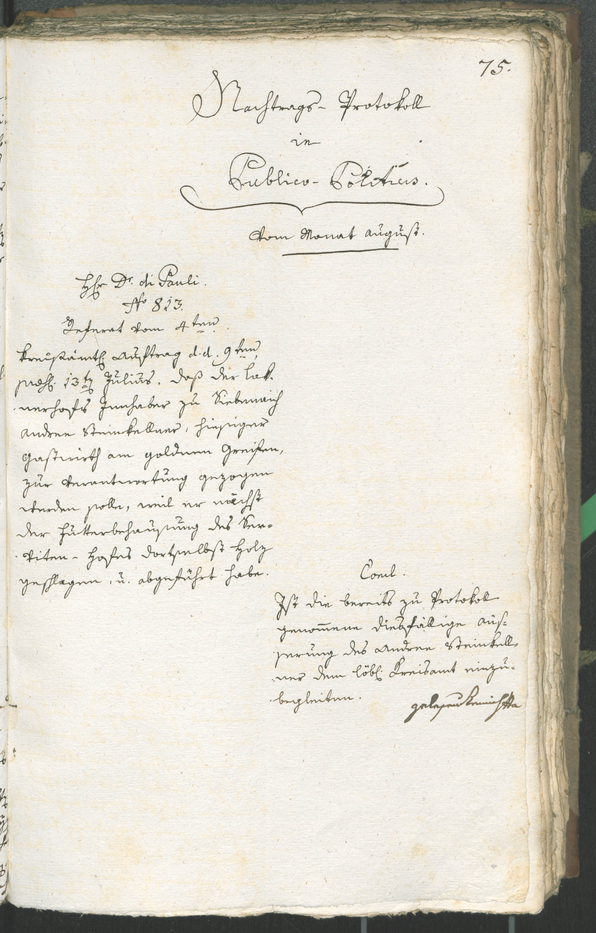 75.
Nachtrags-Protokoll
in
Publico-Politicis.
Vom Monat August.
Hr. Dr. di Pauli.
No 813.
Referat vom 4ten
Kreisämtl. Auftrag d.d. 9ten,
13ten Julius, daß der
nerhofs Innhaber zu Siebeneich
Andree Steinkellner, hiesiger
Gastwirth am goldenen Greifen,
zur Verantwortung gezogen
werden solle, weil er nächst
der Futterbehausung des Ser-
viten-Hofes dortselbst Holz
geschlagen, u. abgeführt habe.
Concl.
Ist die bereits zu Protokoll
genommene diesfällige Äus-
serung des Andree Steinkell-
ner dem löbl. Kreisamt einzu-
begleiten.